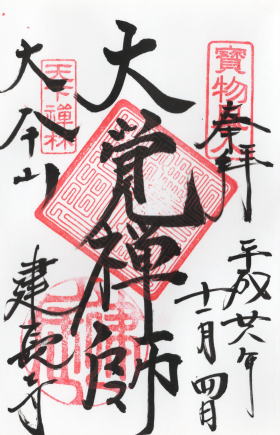 寶物
奉拝
平成廿年
十一月四日
大覚禅師
天下禅林
大本山
建長寺